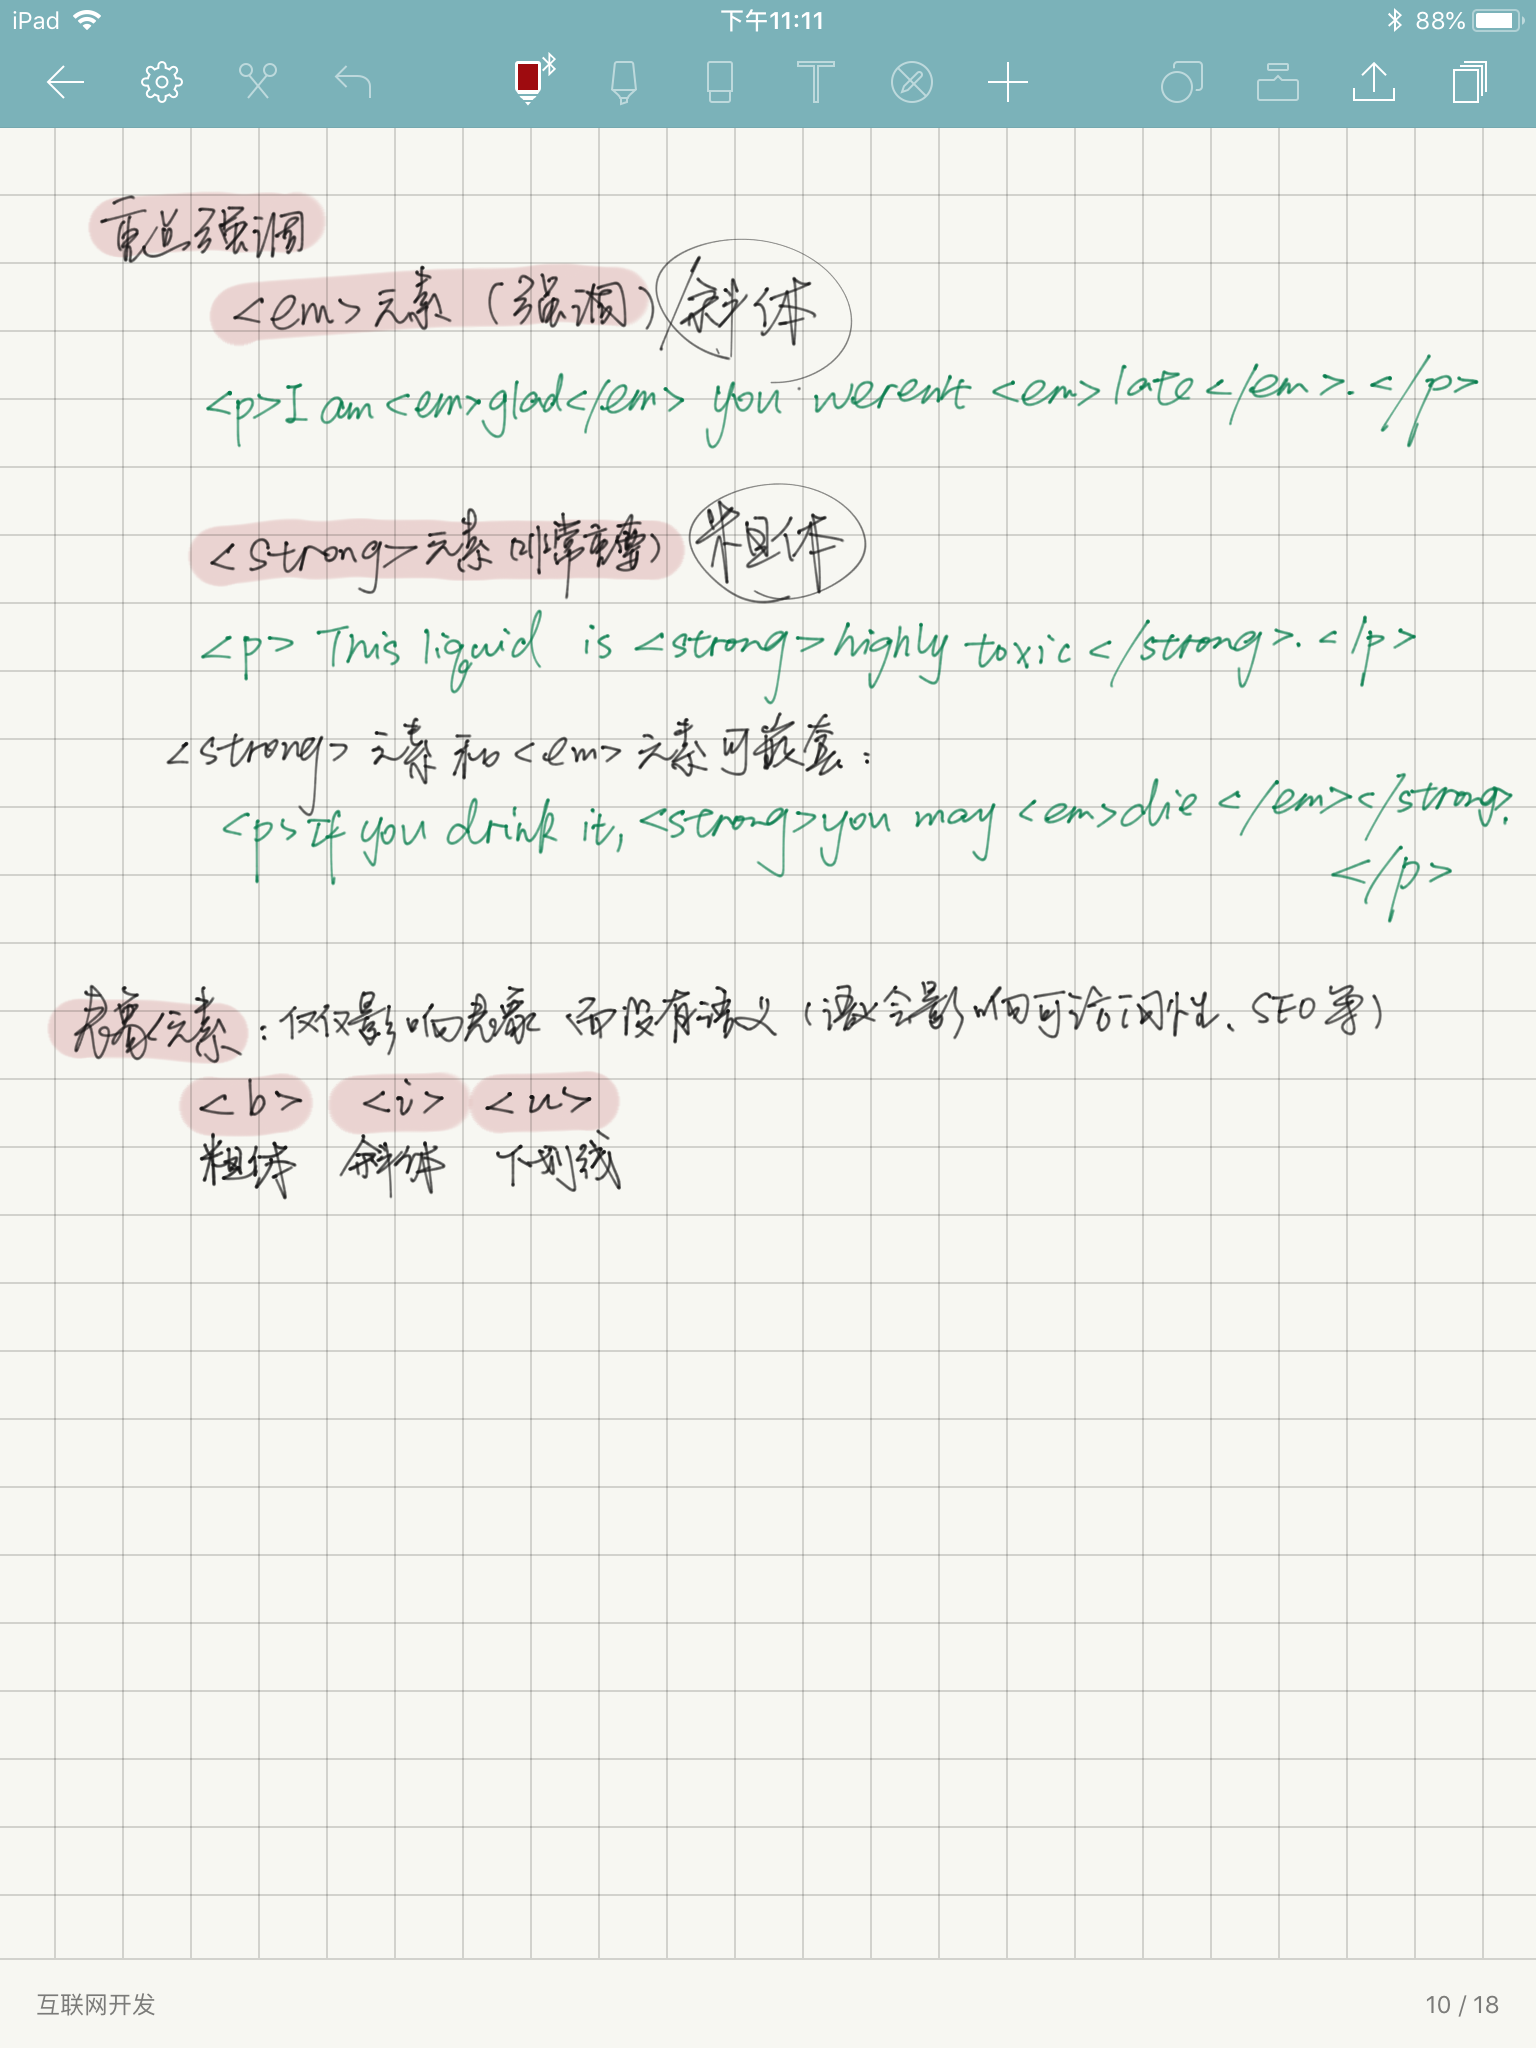 iPad 下午11:11 88%
重点强调
<em>元素（强调）/斜体
<p>I am <em>glad</em> you weren't <em>late</em>. </p>
<strong>元素（非常重要） 粗体
<p> This liquid is <strong>highly toxic</strong>. </p>
<strong>元素和<em>元素可嵌套：
<p>If you drink it, <strong>you may <em>die</em></strong>.
</p>
表象元素：仅仅影响表象而没有语义（语义会影响可访问性、SEO等）
<b> <i> <u>
粗体 斜体 下划线
互联网开发 10 / 18